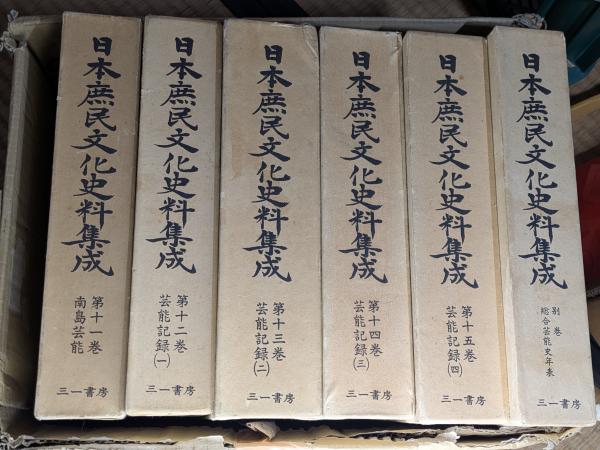 日本庶民文化史料集成
第十一巻
南島芸能
三一書房
日本庶民文化史料集成
第十二巻
芸能記録(一)
三一書房
日本庶民文化史料集成
第十三巻
芸能記録(二)
三一書房
日本庶民文化史料集成
第十四巻
芸能記録(三)
三一書房
日本庶民文化史料集成
第十五巻
芸能記録(四)
三一書房
日本庶民文化史料集成
別巻
総合芸能史年表
三一書房